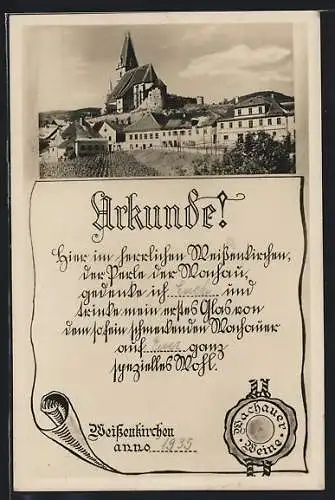 Urkunde!
Hier im herrlichen Weißenkirchen,
der Perle der Wachau,
gedenke ich und
trinke mein erstes Glas von
dem so fein schmeckenden Wachauer
auf ganz
spezielles Wohl.
Weißenkirchen
anno 1935
Wachauer
Weine